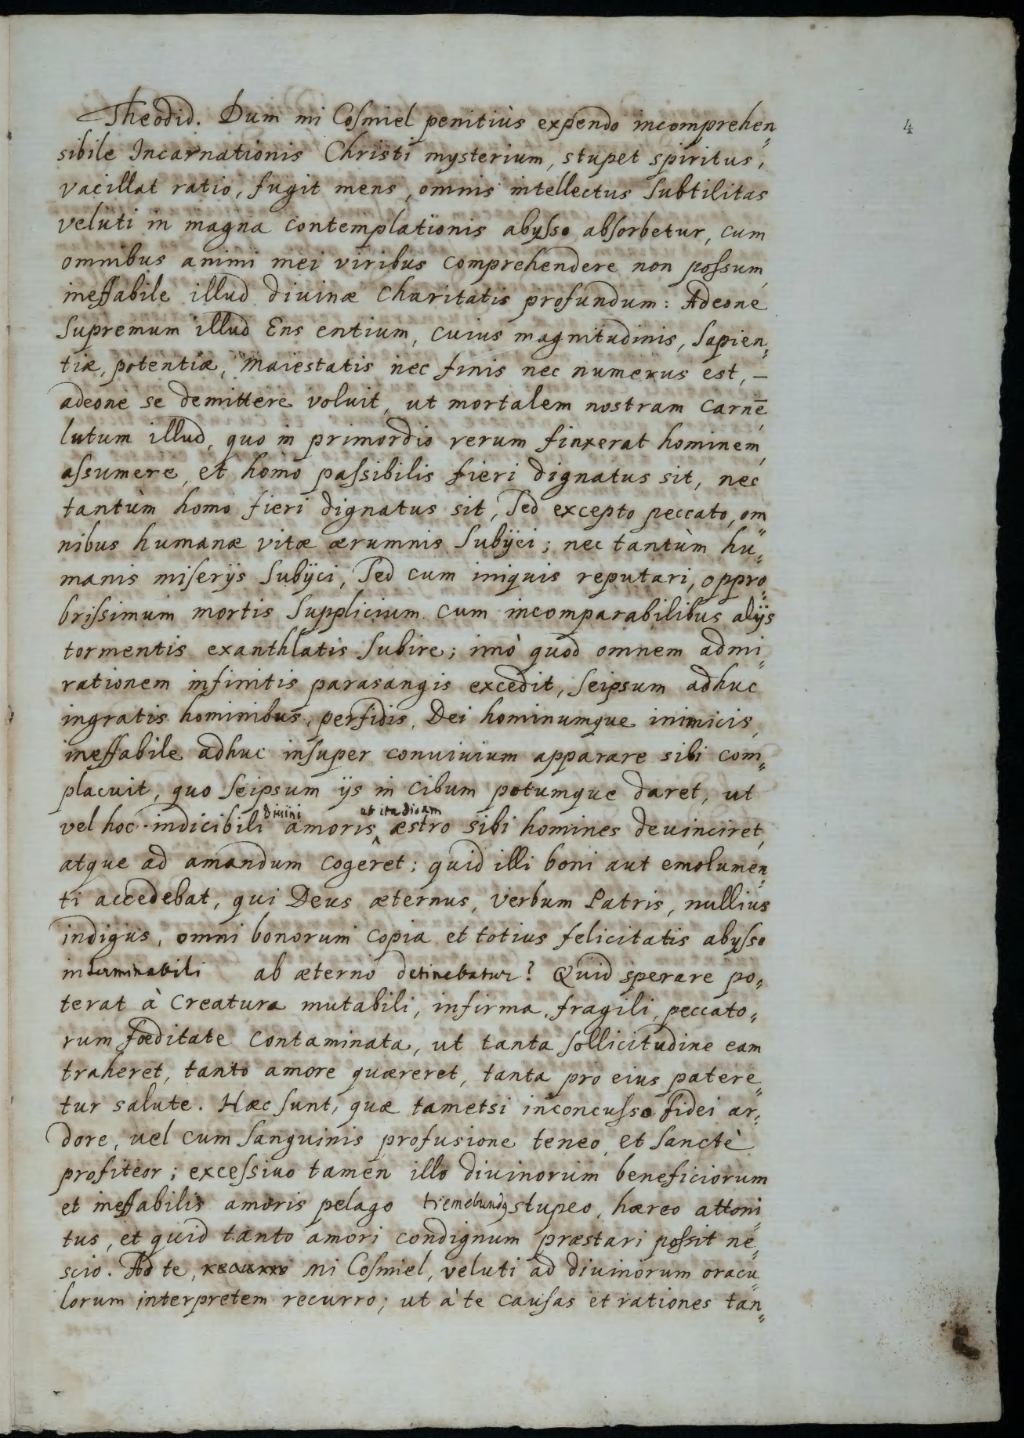 4
Theodid. Dum mi Cosmiel penitiùs expendo incomprehen„
sibile Incarnationis Christi mysterium, stupet spiritus,
vacillat ratio, fugit mens, omnis intellectus subtilitas
veluti in magna contemplationis abysso absorbetur, cum
omnibus animi mei viribus comprehendere non possum
ineffabile illud divinæ charitatis profundum: Adeone
supremum illud Ens entium, cuius magnitudinis, sapien„
tiæ, potentiæ, Maiestatis nec finis nec numerus est, —
adeone se demittere voluit, ut mortalem nostram carnē
lutum illud, quo in primordio rerum finxerat hominem,
assumere, et homo passibilis fieri dignatus sit, nec
tantùm homo fieri dignatus sit, sed excepto peccato, om„
nibus humanæ vitæ ærumnis subijci; nec tantùm hu„
manis miserijs subijci, sed cum iniquis reputari, oppro„
brissimum mortis supplicium cum incomparabilibus alijs
tormentis exanthlatis subire; imò quod omnem admi„
rationem infinitis parasangis excedit, seipsum adhuc
ingratis hominibus, perfidis, Dei hominumque inimicis,
ineffabile adhuc insuper conuiuium apparare sibi com„
placuit, quo seipsum ijs in cibum potumque daret, ut
divini
vel hoc indicibili amoris æstro sibi homines devinciret,
atque ad amandum cogeret: quid illi boni aut emolumen„
ti accedebat, qui Deus æternus, Verbum Patris, nullius
indigus, omni bonorum copia et totius felicitatis abysso
interminabili ab æterno detinebatur? Quid sperare po„
terat à Creatura mutabili, infirma, fragili, peccato„
rum fœditate contaminata, ut tanta sollicitudine eam
traheret, tanto amore quæreret, tanta pro eius patere„
tur salute. Hæc sunt, quæ tametsi inconcusso fidei ar„
dore, vel cum sanguinis profusione teneo, et sanctè
profiteor; excessiuo tamen illo diuinorum beneficiorum
et ineffabilis amoris pelago tremebundus stupeo, hæreo attoni„
tus, et quid tanto amori condignum præstari possit ne„
scio. Ad te, mi Cosmiel, veluti ad diuinorum oracu„
lorum interpretem recurro; ut à te causas et rationes tan„